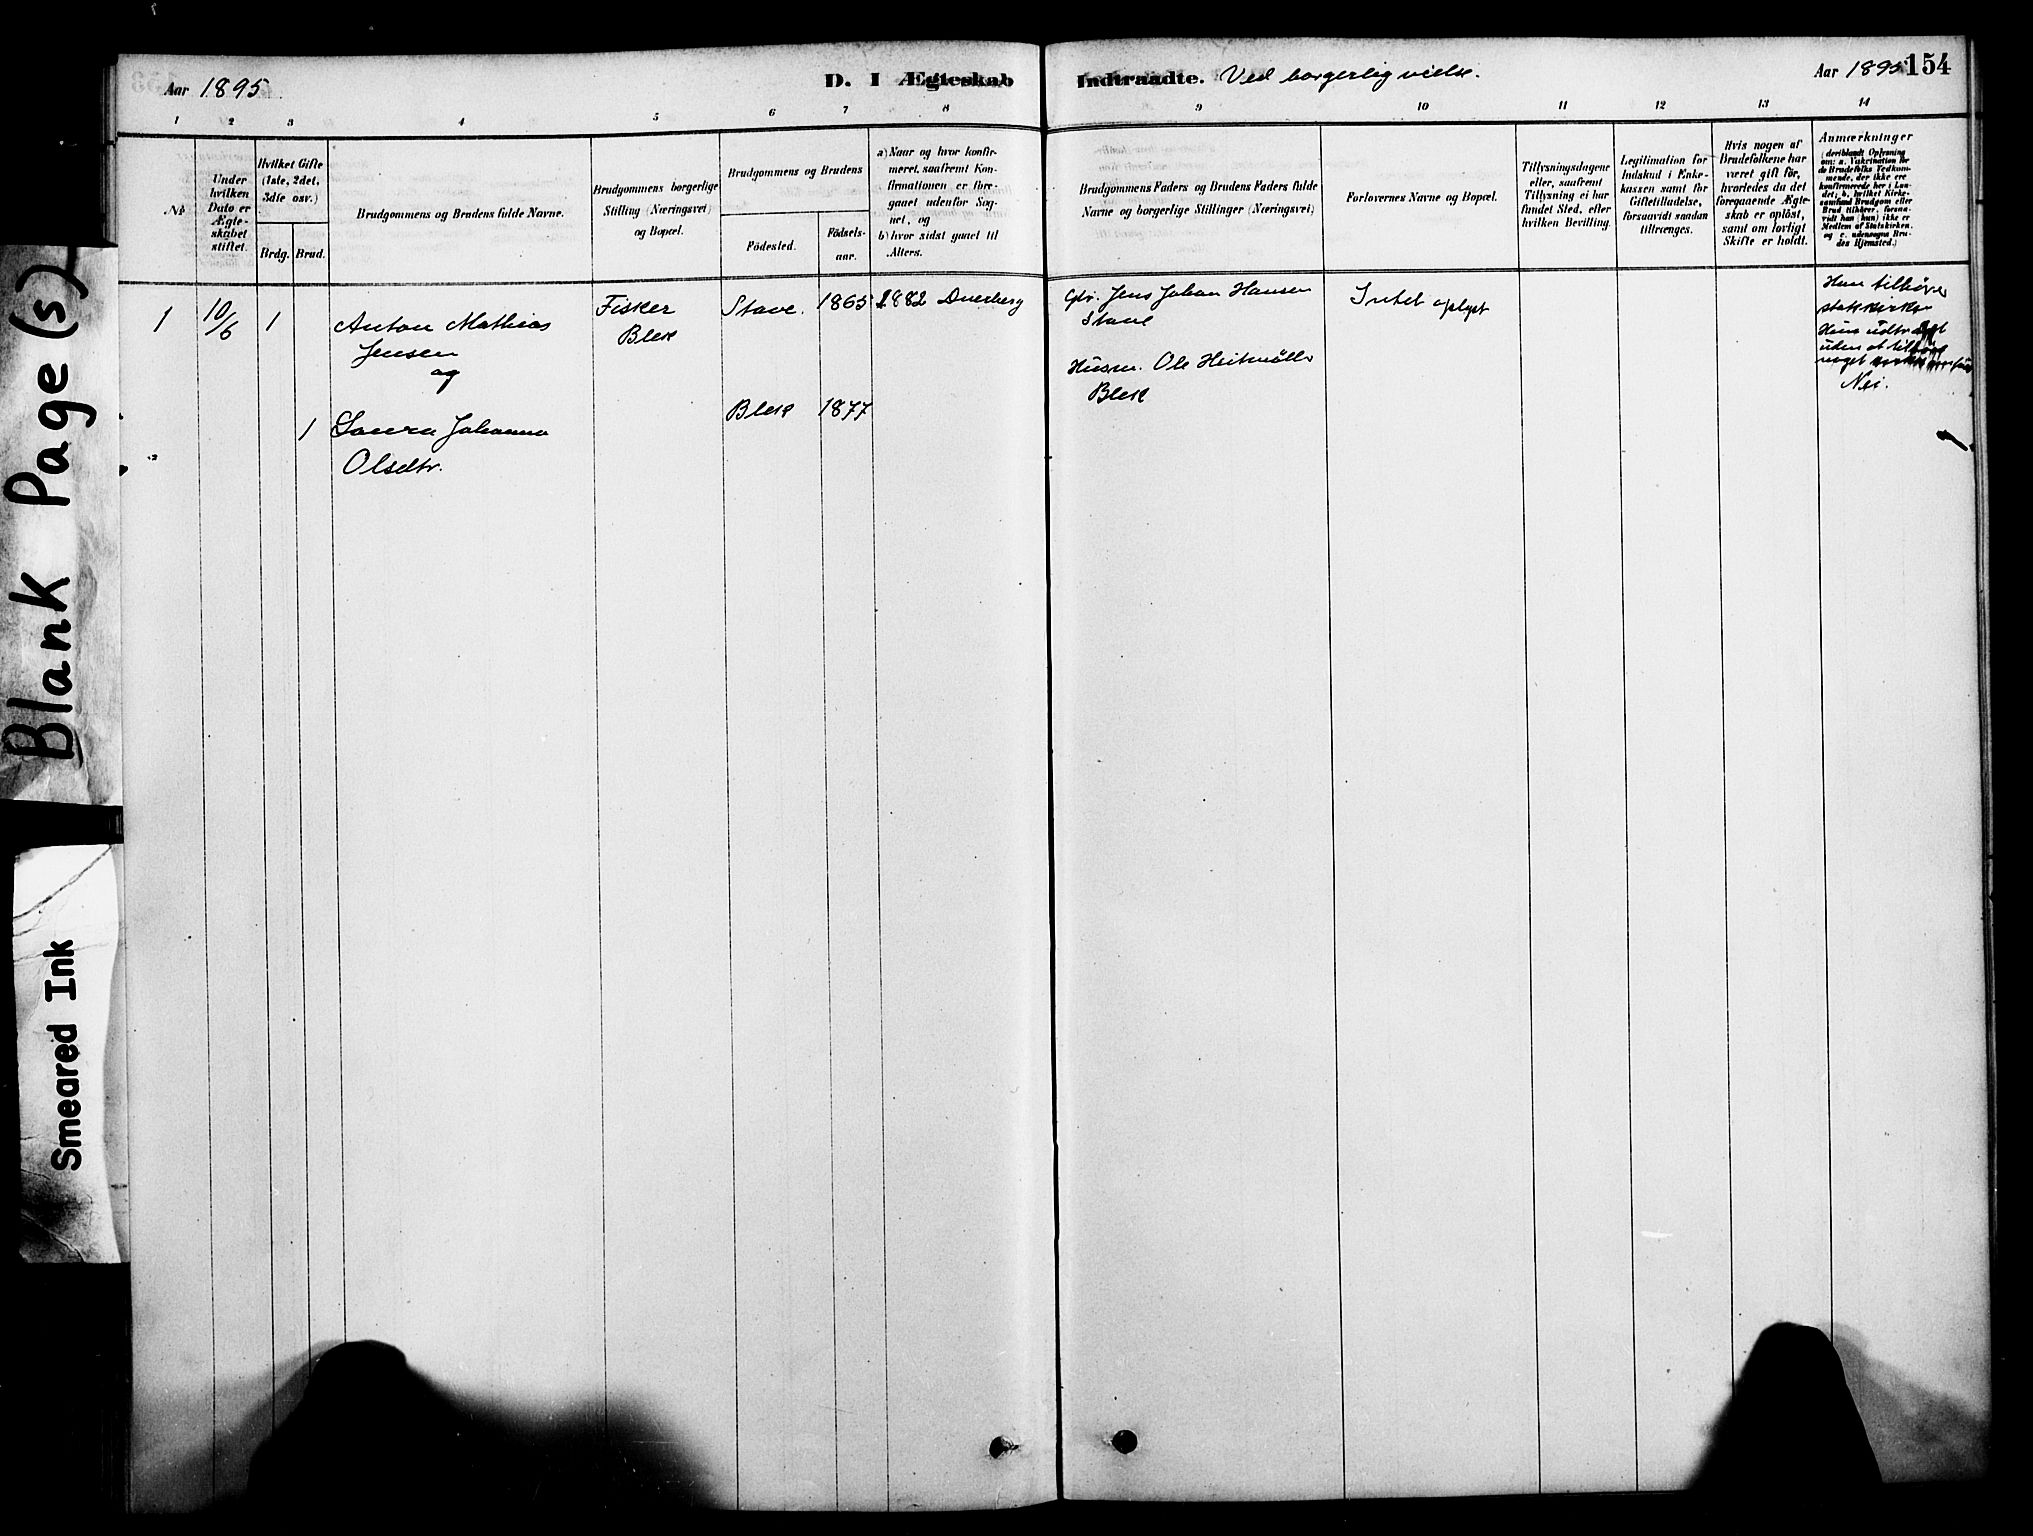 Blank Page(s)
Smeared Ink
Aar 1895
D. I Ægteskab Indtraadte. Ved borgerlig vielse.
Aar 1895
154
1 2 3 4 5 6 7 8 9 10 11 12 13 14
№
Under
hvilken
Dato er
Ægte-
skabet
stiftet.
Hvilket Gifte
(1ste, 2det,
3die osv.)
Brdg. Brud.
Brudgommens og Brudens fulde Navne.
Brudgommens borgerlige
Stilling (Næringsvei)
og Bopæl.
Brudgommens og Brudens
Födested.
Födsels-
aar.
a) Naar og hvor konfir-
meret, saafremt Kon-
firmationen er fore-
gaaet udenfor Sog-
net, og
b) hvor sidst gaaet til
Alters.
Brudgommens Faders og Brudens Faders fulde
Navne og borgerlige Stillinger (Næringsvei)
Forlovernes Navne og Bopæl.
Tillysningsdagene
eller, saafremt
Tillysning ei har
fundet Sted, efter
hvilken Bevilling.
Legitimation for
Indskud i Enke-
kassen samt for
Giftetilladelse,
forsaavidt saadan
tiltrænges.
Hvis nogen af
Brudefolkene har
været gift för,
hvorledes da det
foregaaende Ægte-
skab er oplöst,
samt om lovligt
Skifte er holdt.
Anmærkninger
(deriblandt Oplysning
om: a. Vakcination for
de Brudefolks Vedkom-
mende, der ikke ere
konfirmerede her i Lan-
det; b. hvilket Kirke-
samfund Brudgom eller
Brud tilhörer, forsaa-
vidt han (hun) ikke er
Medlem af Statskirken,
og c. udensogns Bru-
des Hjemsted.)
1
10/6
1
Anton Mathias
Jensen
og
1
Laura Johanna
Olsdtr.
Fisker
Bleik
Stave. 1865
Bleik 1877
1882 Dverberg
Gbr. Jens Johan Hansen
Stave
Husm. Ole Heitmöller
Bleik
Intet oplyst
Han tilhører
statskirken
Hun udtraadt
uden at tilhøre
noget
Nei.